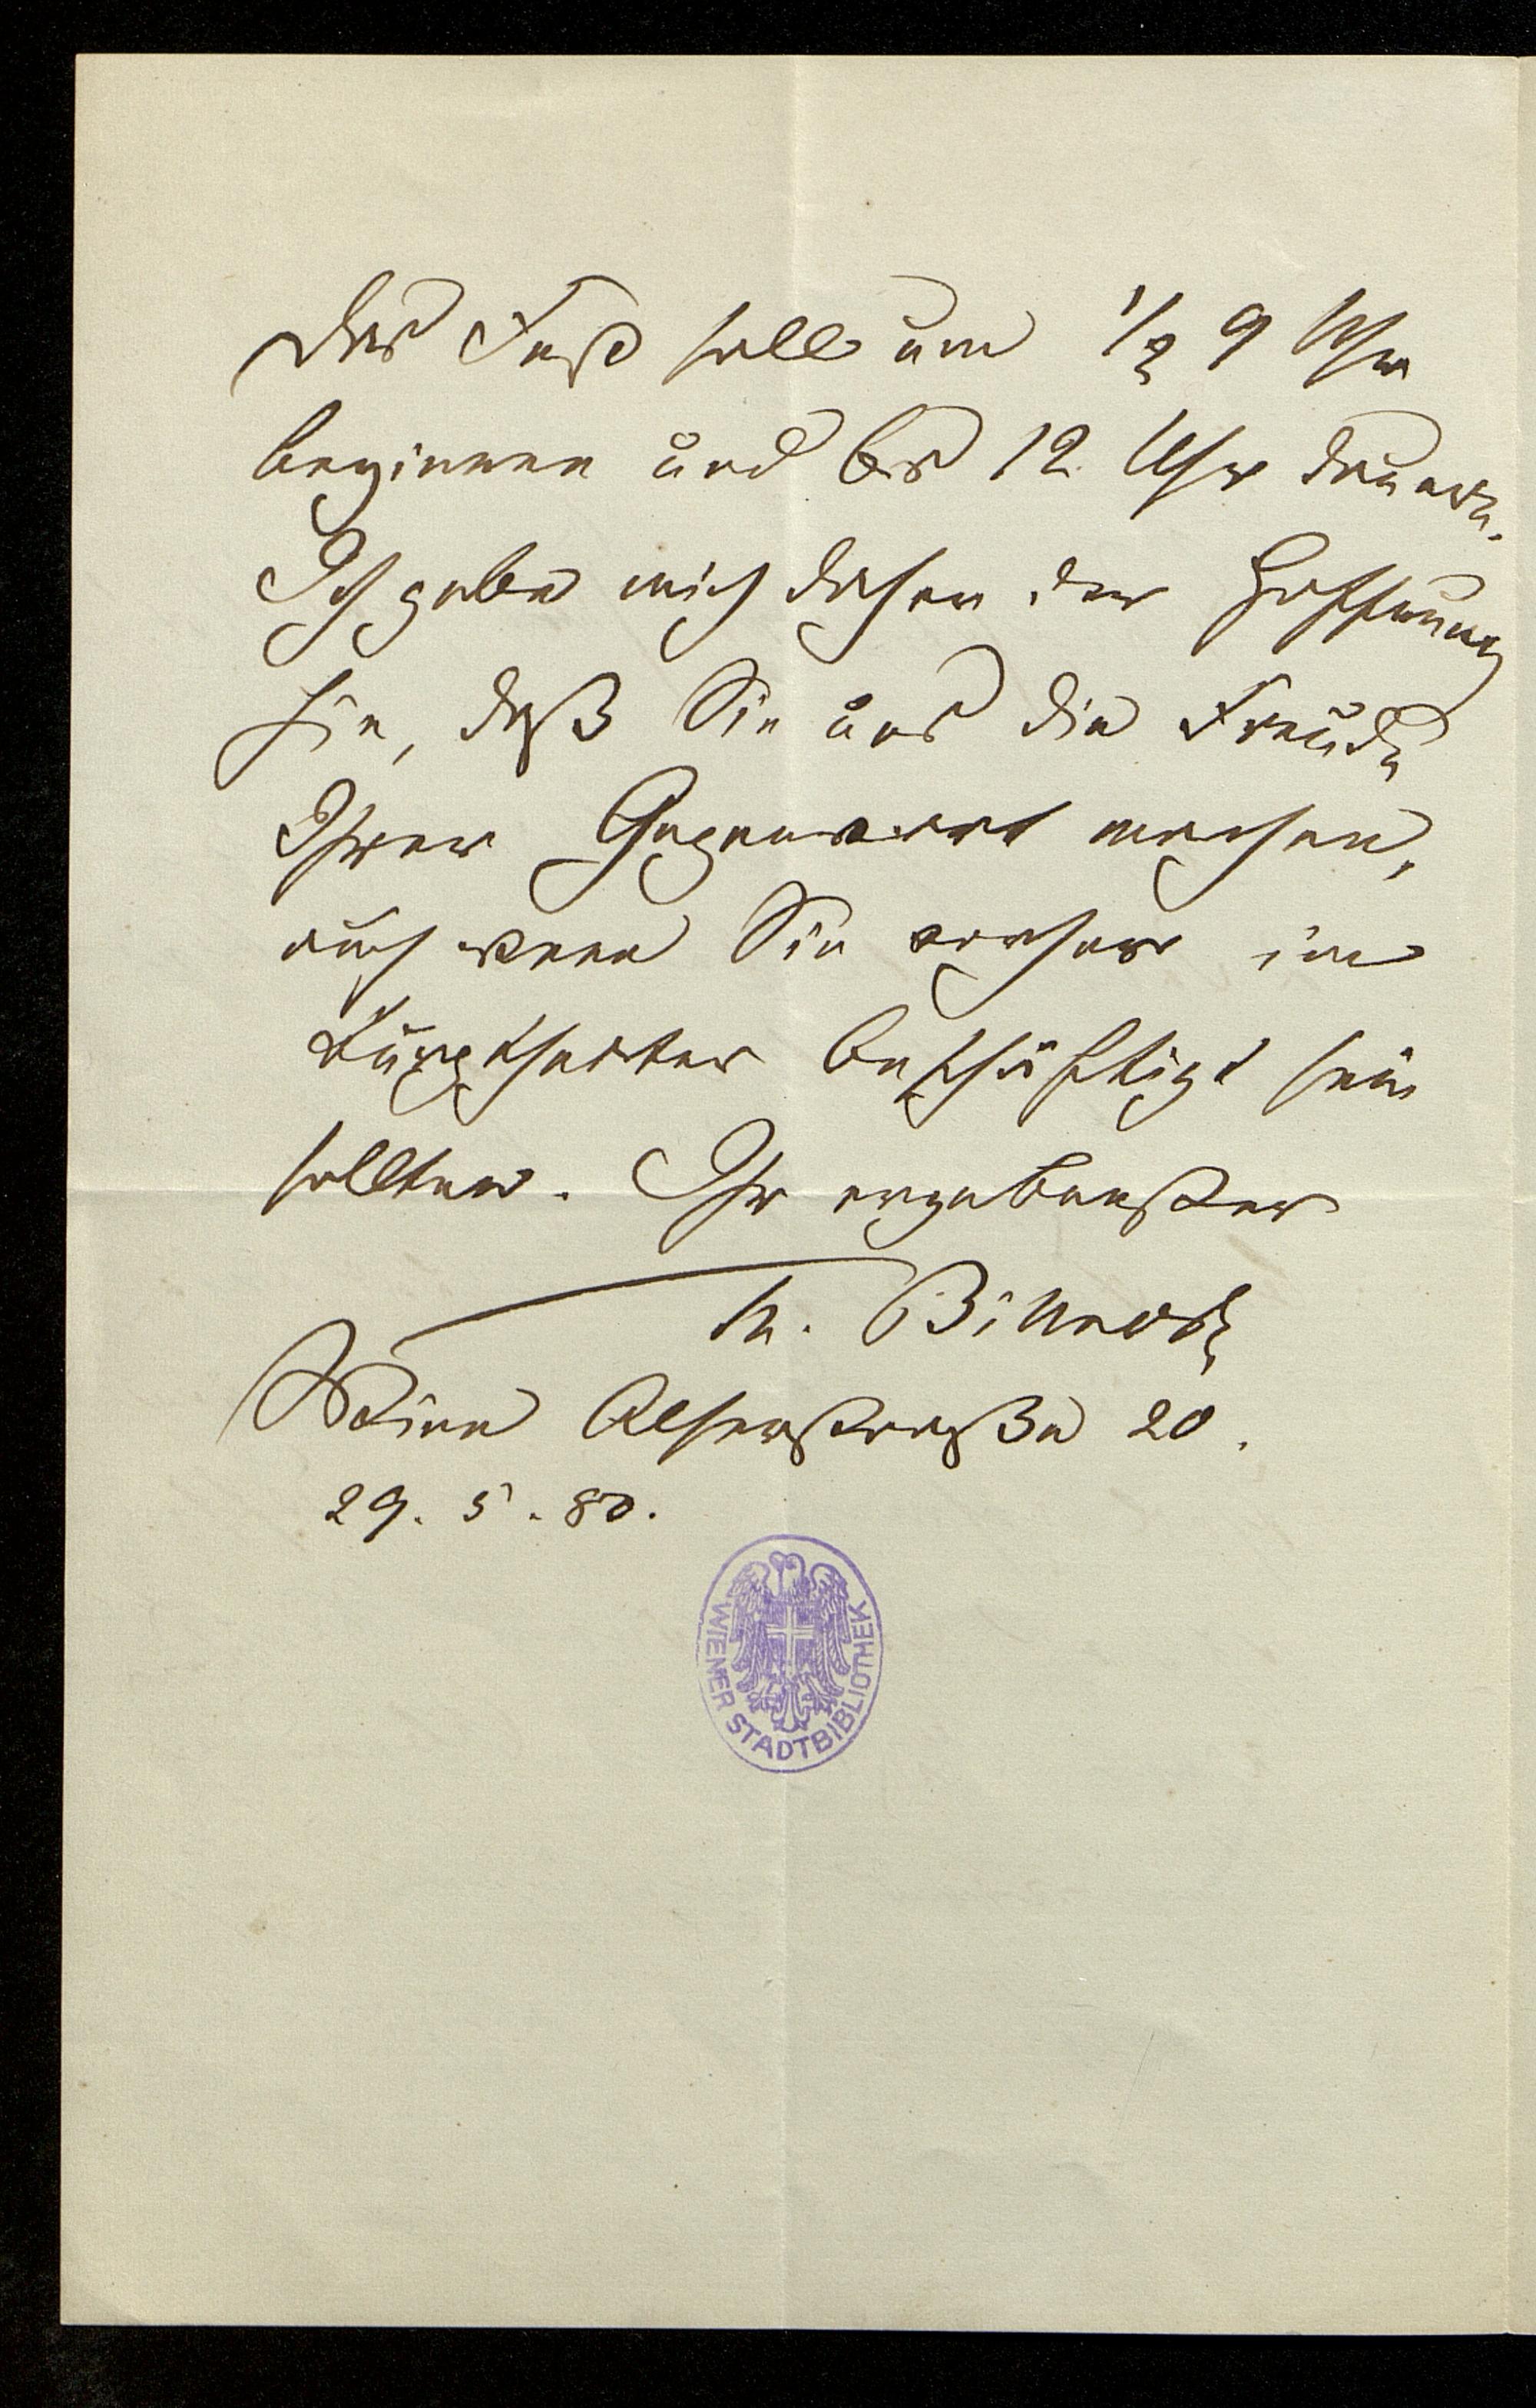 Das Fest soll um 1/2 9 Uhr
beginnen und bis 12 Uhr dauern.
Ich gebe mich daher der Hoffnung
hin, daß Sie uns die Freude
Ihrer Gegenwart machen,
auch wenn Sie vorher im
Burgtheater beschäftigt sein
sollten. Ihr ergebenster
Th. Billroth
Wien Alserstraße 20.
29. 5. 80.
WIENER STADTBIBLIOTHEK